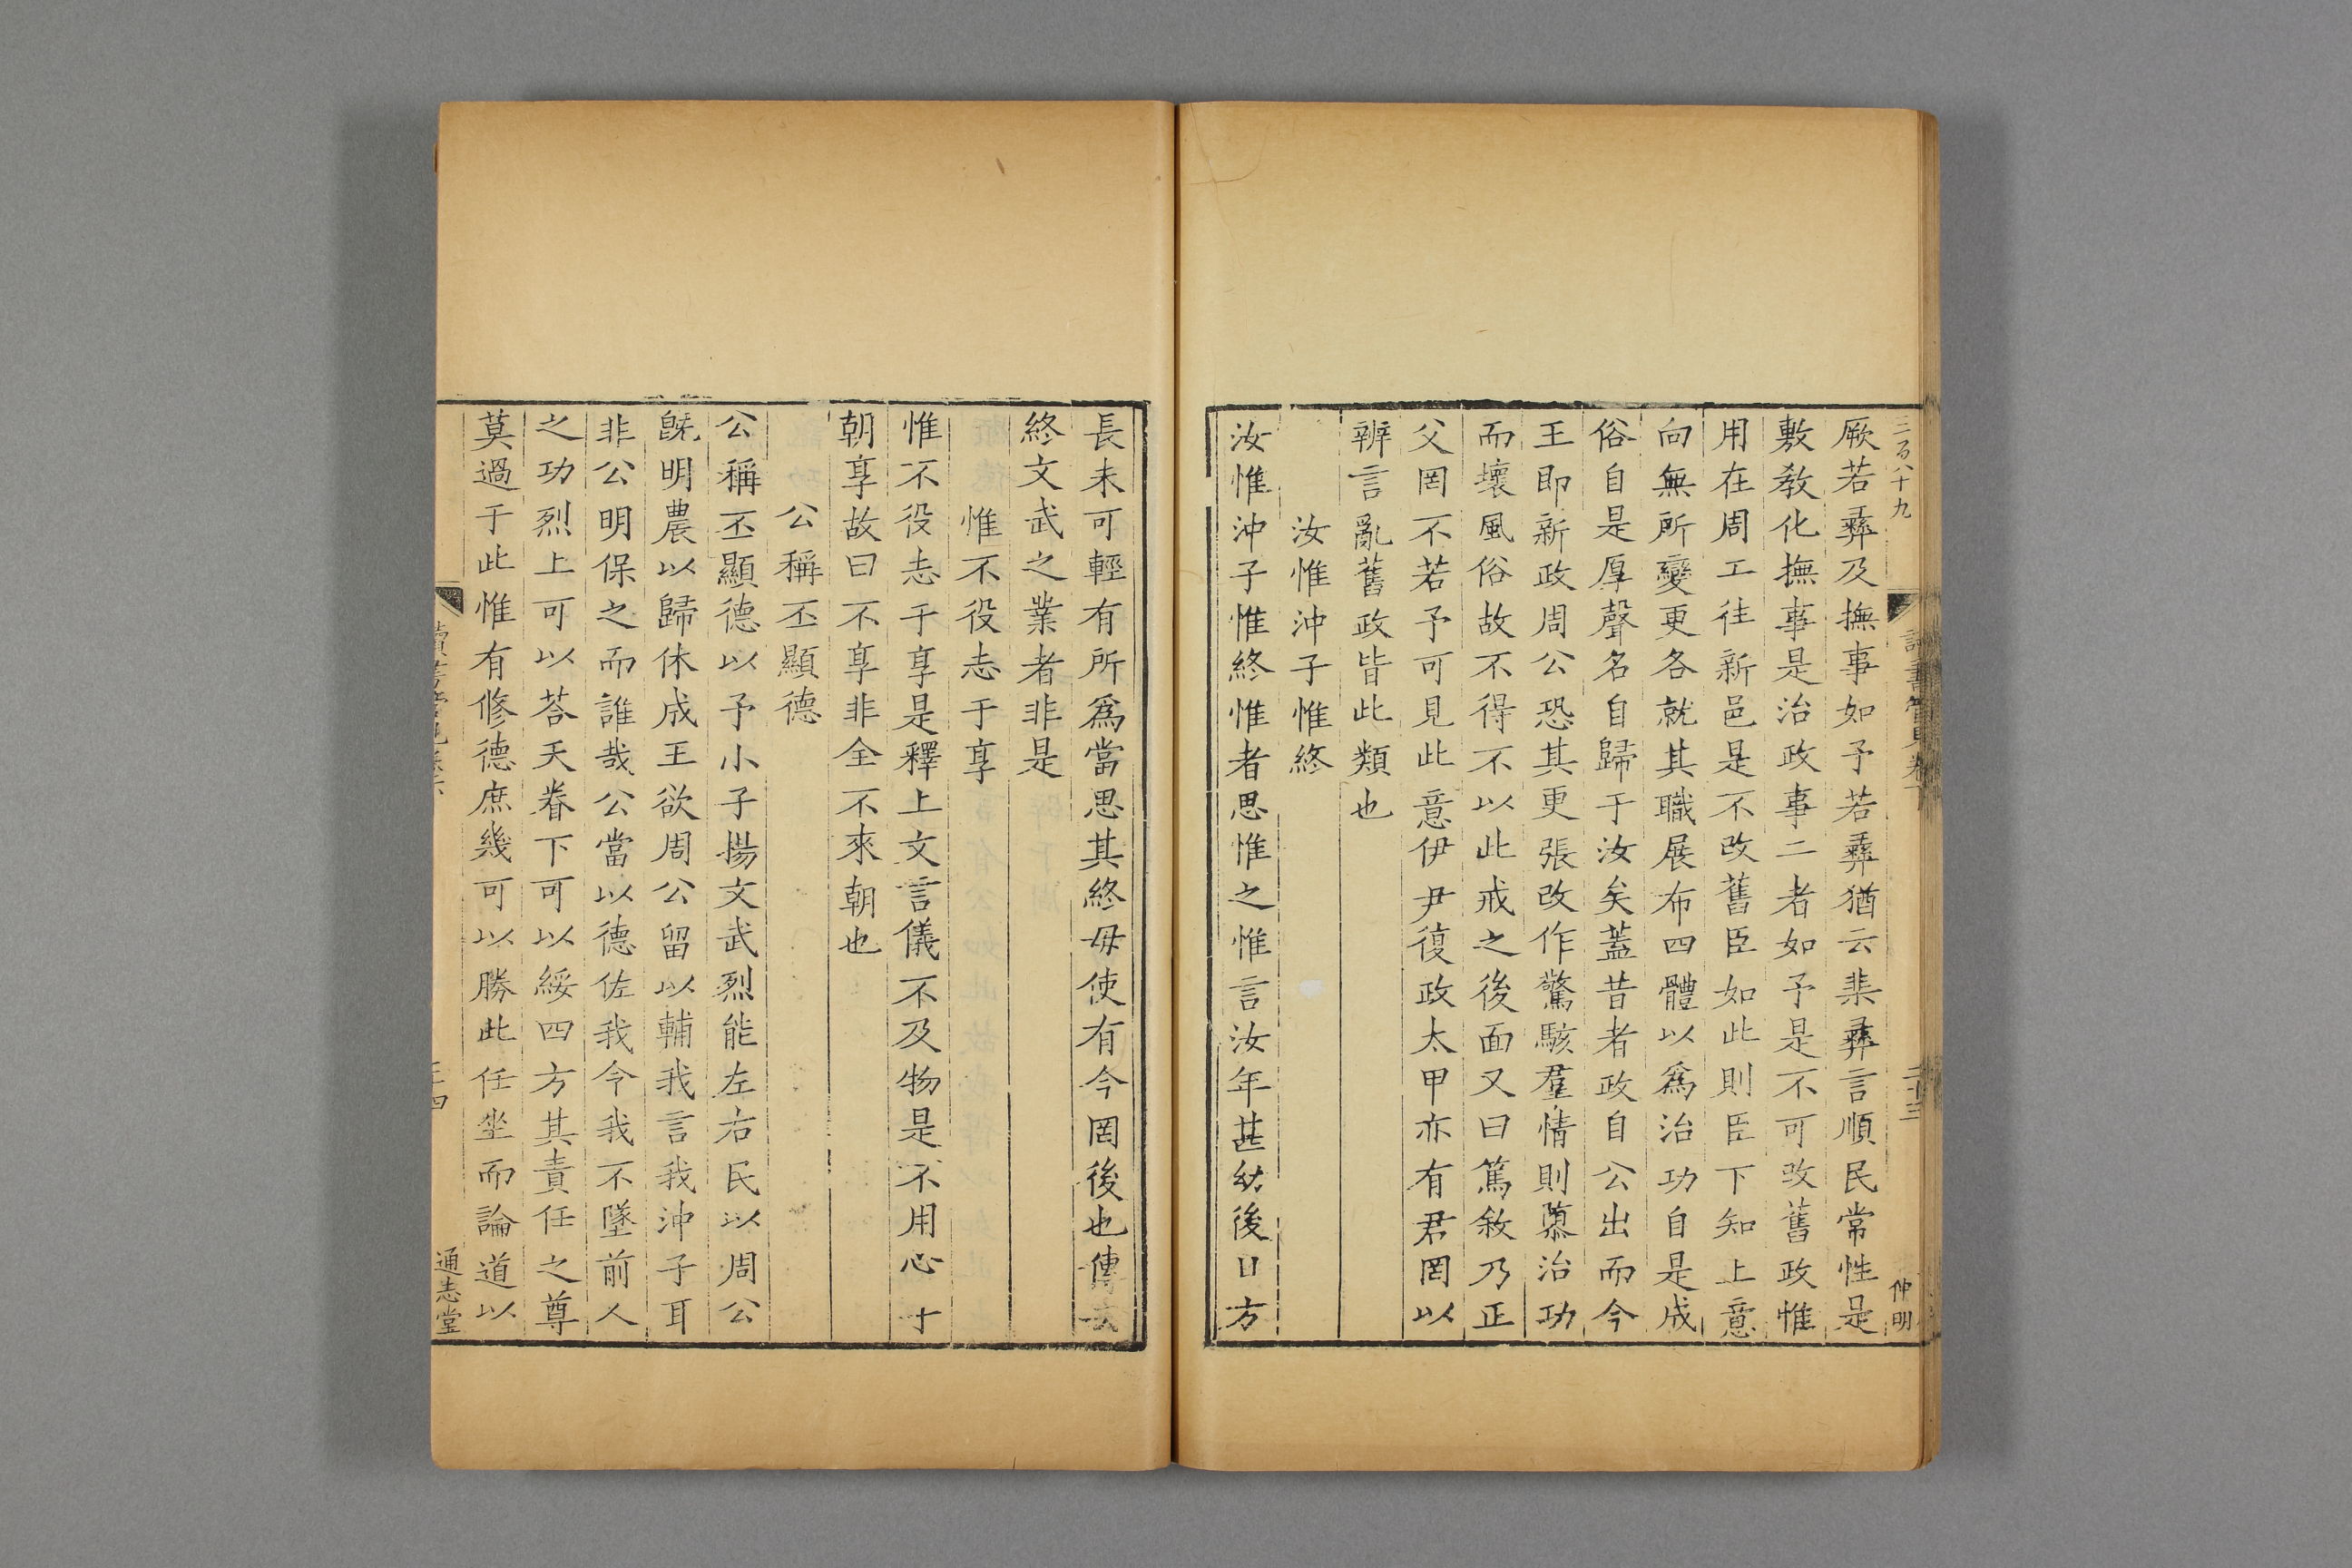 厥若彝及撫事如予若彝猶云棐彝言順民常性是
敷教化撫事是治政事二者如予是不可改舊政惟
用在周工往新邑是不改舊臣如此則臣下知上意
向無所變更各就其職展布四體以爲治功自是成
俗自是厚聲名自歸于汝矣蓋昔者政自公出而今
王即新政周公恐其更張改作驚駭羣情則隳治功
而壞風俗故不得不以此戒之後面又曰篤敘乃正
父罔不若予可見此意伊尹復政太甲亦有君罔以
辨言亂舊政皆此類也
汝惟沖子惟終
汝惟沖子惟終惟者思惟之惟言汝年甚幼後日方
長未可輕有所爲當思其終毋使有今罔後也傳云
終文武之業者非是
惟不役志于享
惟不役志于享是釋上文言儀不及物是不用心于
朝享故曰不享非全不來朝也
公稱丕顯德
公稱丕顯德以予小子揚文武烈能左右民以周公
旣明農以歸休成王欲周公留以輔我言我沖子耳
非公明保之而誰哉公當以德佐我今我不墜前人
之功烈上可以荅天眷下可以綏四方其責任之尊
莫過于此惟有修德庶幾可以勝此任坐而論道以
通志堂
仲明